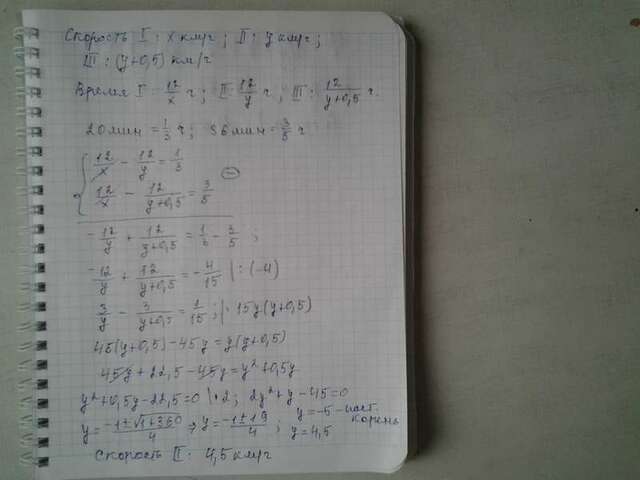 Скорость I: x км/ч; II: y км/ч;
III: (y+0,5) км/ч
Время I: 12/x ч; II: 12/y ч; III: 12/(y+0,5) ч.
20 мин = 1/3 ч; 36 мин = 3/5 ч
12/x - 12/y = 1/3
12/x - 12/(y+0,5) = 3/5
-12/y + 12/(y+0,5) = 1/3 - 3/5;
-12/y + 12/(y+0,5) = -4/15 |:(-4)
3/y - 3/(y+0,5) = 1/15; |· 15y(y+0,5)
45(y+0,5) - 45y = y(y+0,5)
45y + 22,5 - 45y = y²+0,5y
y²+0,5y-22,5=0 |·2; 2y²+y-45=0
y = (-1±√(1+360))/4 ⇒ y = (-1±19)/4; y=-5 - пост. корень
y=4,5
Скорость II: 4,5 км/ч